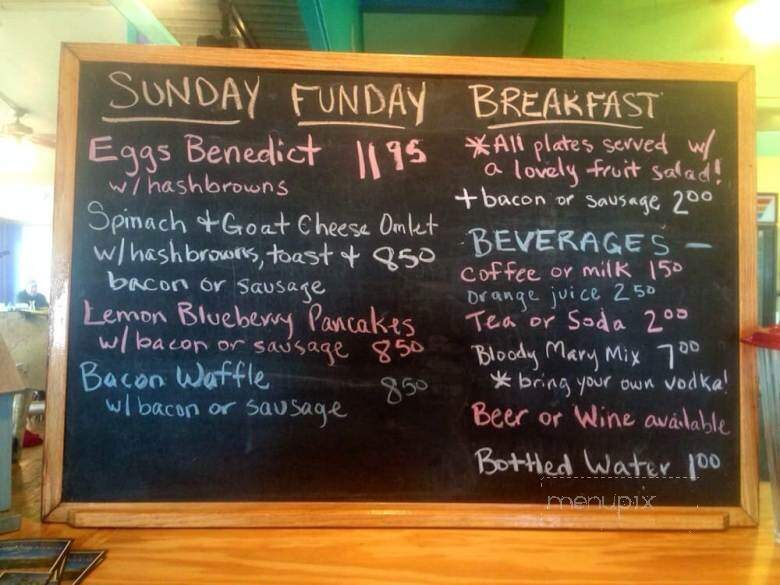 SUNDAY FUNDAY BREAKFAST
Eggs Benedict 1195
w/hashbrowns
Spinach + Goat Cheese Omlet
w/hashbrowns, toast + 850
bacon or sausage
Lemon Blueberry Pancakes
w/bacon or sausage 850
Bacon Waffle 850
w/bacon or sausage
*All plates served w/
a lovely fruit salad!
+ bacon or sausage 200
BEVERAGES -
coffee or milk 150
Orange juice 250
Tea or Soda 200
Bloody Mary Mix 700
* bring your own vodka!
Beer or Wine available
Bottled Water 100
menupix